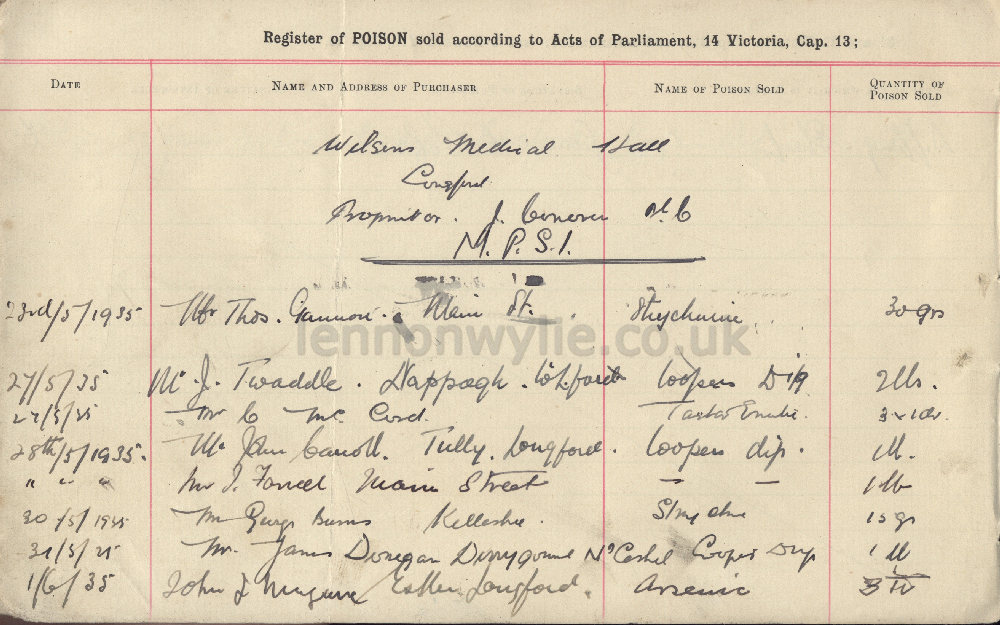 Register of POISON sold according to Acts of Parliament, 14 Victoria, Cap. 13;
DATE NAME AND ADDRESS OF PURCHASER NAME OF POISON SOLD QUANTITY OF POISON SOLD
Wilsons Medical Hall
Longford
Proprietor. J.
M.P.S.I.
23rd/5/1935 Mr Thos. Gannon. Main St. Strychnine 30 grs
lennonwylie.co.uk
27/5/35 Mr J. Twaddle. Nappagh. Coopers Dip 2 lbs.
27/5/35 Mr C Mc Cord. Tartar Emetic.
28th/5/1935. Mr John Carroll. Tully. Longford. Coopers dip. 1 lb.
" " " Mr J. Farrell Main Street — — 1 lb
30/5/1935 Mr George Burns Killashee. Strychnine 15 grs
31/5/35 Mr. James Donegan Derrygowna Nr Cashel Coopers Dip 1 lb
1/6/35 John J Longford. Arsenic